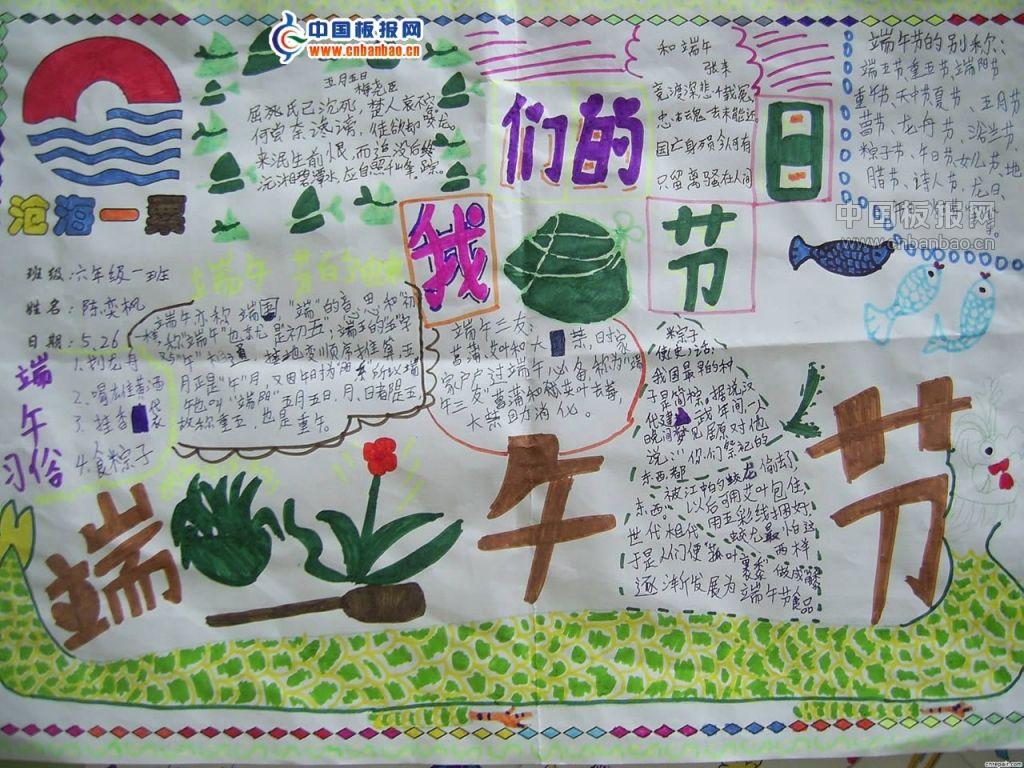 中国板报网
www.cnbanbao.cn
沧海一粟
班级:六年级一班
姓名:陈奕枫
日期:5.26
五月五日
梅尧臣
屈氏已沉死,楚人哀不容
何尝奈谗谤,徒欲却蛟龙。
未泯生前恨,而追没后踪
沅湘碧潭水,应自照千峰。
我们的节日
和端午
张耒
竞渡深悲千载冤,
忠魂一去
国亡身殒今何有
只留离骚在人间
端午节的别称:
端五节、重五节、端阳节
重午节、天中节、夏节、五月节
菖节、龙舟节、浴兰节
粽子节、午日节、女儿节、地
腊节、诗人节、龙日、
中国板报网
www.cnbanbao.cn
端午习俗
1.划龙舟
2.喝雄黄酒
3.挂香袋
4.食粽子
端午亦称端五,"端"的意思和"初"
"端午"也就是初五;端五的"五"字
月正是"午"月,又因午时为
午也叫"端阳"五月五日,月、日都是五,
故称重五,也是重午。
端午三友:
菖蒲、艾叶和大蒜,
家户户过端午必备,称为"端
午三友"
我国最早的种
子是筒粽,据说汉
代建武年间,一人
晚间梦见屈原对他
说:"你们祭祀的
东西,都
被江中的蛟龙偷却
东西。以后可用艾叶包住,
用五彩线捆好,
蛟龙最怕这
两样
于是人们使
世代相传
逐渐发展为端午节食品
端午节
cnrepair.com